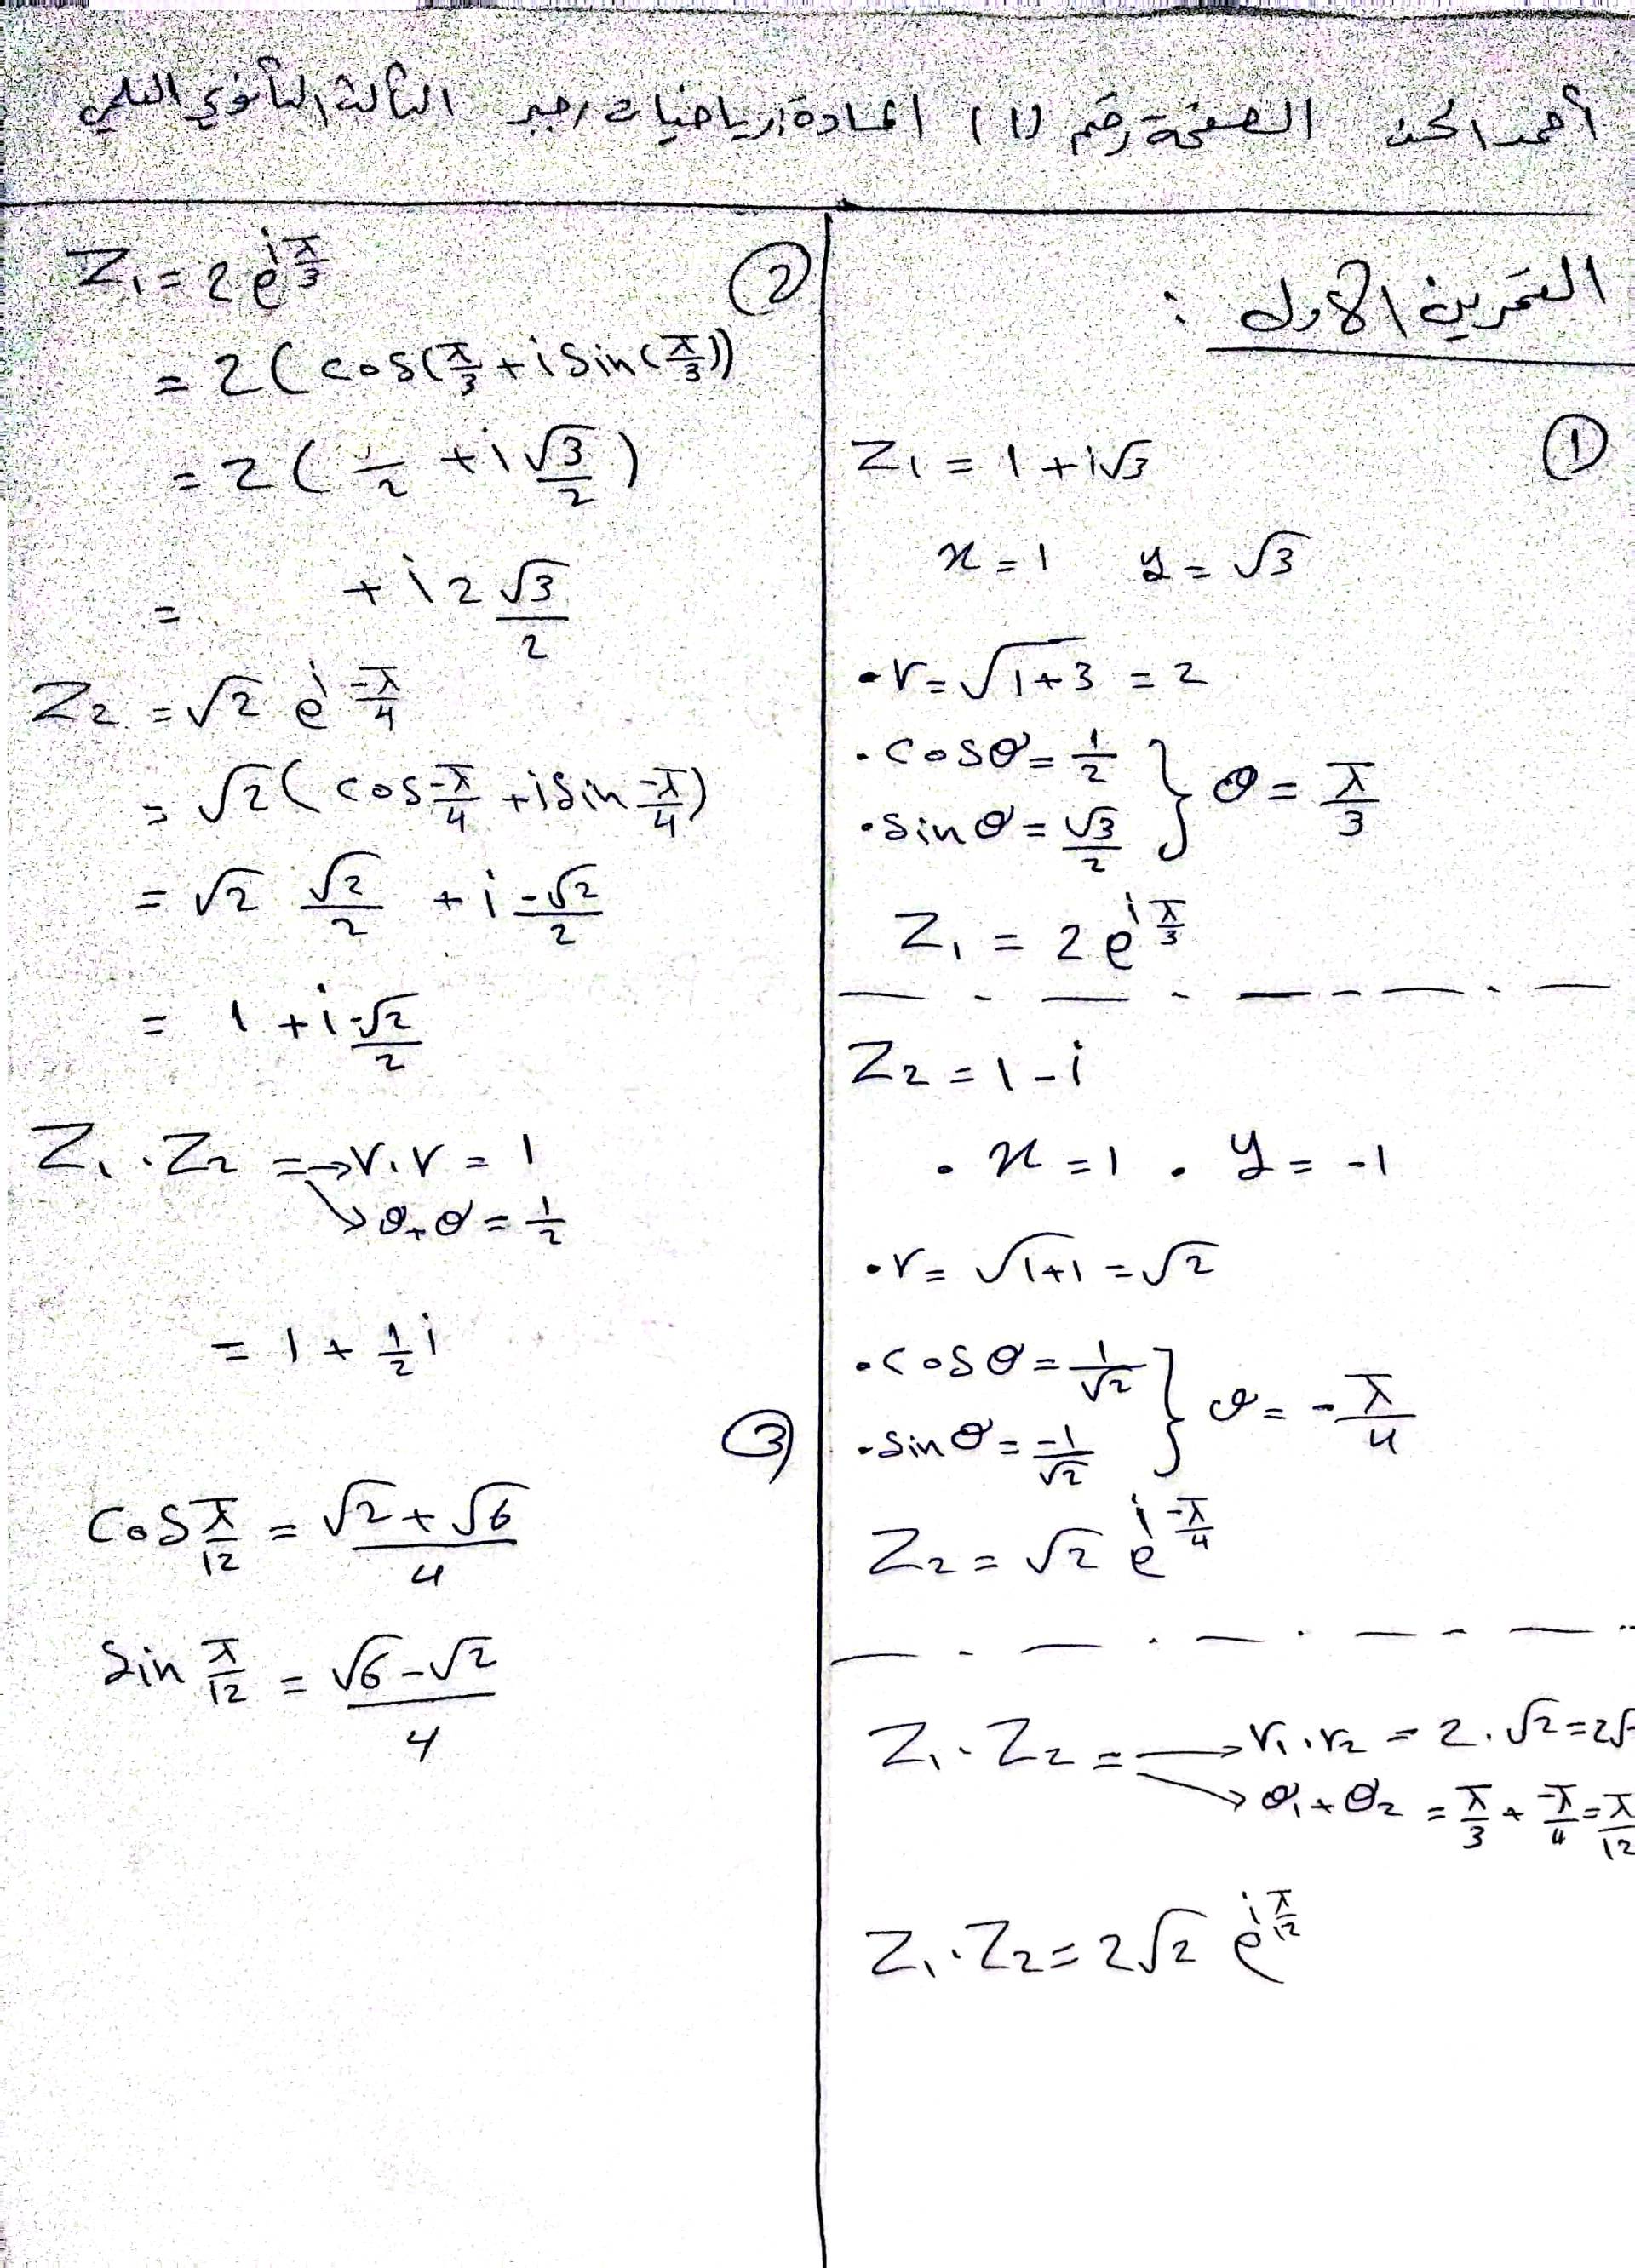 أحمد الحسن الصفحة رقم (1) المادة: رياضيات جبر الثالث الثانوي العلمي
التمرين الأول :
①
Z₁ = 1 + i√3
x = 1 y = √3
• r = √(1+3) = 2
• cos θ = 1/2
• sin θ = √3/2 } θ = π/3
Z₁ = 2 e^(i π/3)
Z₂ = 1 - i
• x = 1 • y = -1
• r = √(1+1) = √2
• cos θ = 1/√2
• sin θ = -1/√2 } θ = -π/4
Z₂ = √2 e^(i -π/4)
Z₁ . Z₂ = → r₁ . r₂ = 2 . √2 = 2√
→ θ₁ + θ₂ = π/3 + -π/4 = π/12
Z₁ . Z₂ = 2√2 e^(i π/12)
②
Z₁ = 2 e^(i π/3)
= 2 ( cos(π/3 + i sin(π/3))
= 2 ( 1/2 + i √3/2 )
= + i 2√3/2
Z₂ = √2 e^(i -π/4)
= √2 ( cos -π/4 + i sin -π/4 )
= √2 √2/2 + i -√2/2
= 1 + i -√2/2
Z₁ . Z₂ = → r . r = 1
→ θ + θ = 1/2
= 1 + 1/2 i
③
cos π/12 = (√2 + √6)/4
sin π/12 = (√6 - √2)/4